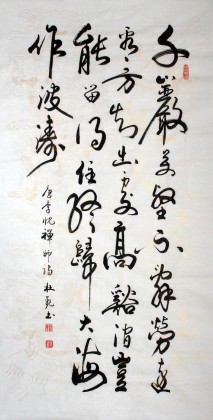 千巖萬壑不辭勞遠
看方知出處高谿澗豈
能留得住終歸大海
作波濤
唐李忱禪師詩 杜書